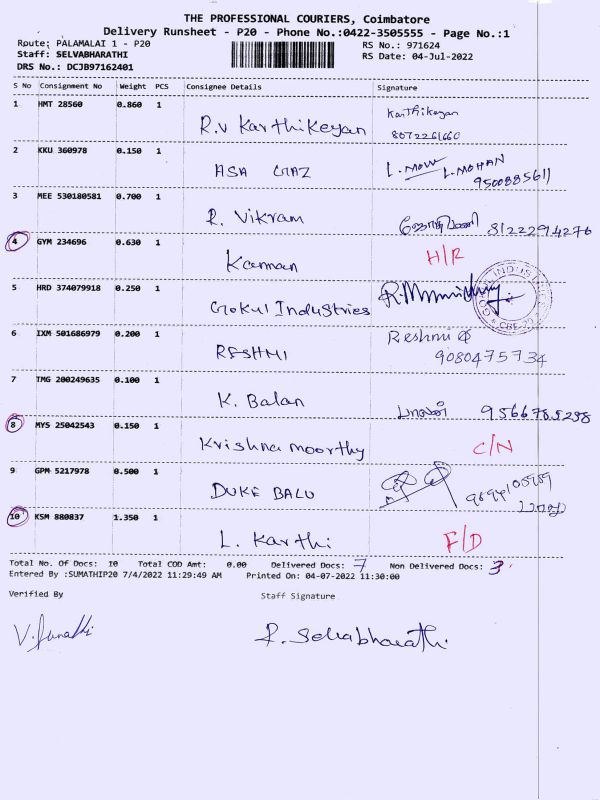 THE PROFESSIONAL COURIERS, Coimbatore
Delivery Runsheet - P20 - Phone No.:0422-3505555 - Page No.:1
Route: PALAMALAI 1 - P20
RS No.: 971624
Staff: SELVABHARATHI
RS Date: 04-Jul-2022
DRS No.: DCJB97162401
S No Consignment No Weight PCS Consignee Details Signature
1 HMT 28560 0.860 1
R.V Karthikeyan
Karthikeyan
8072261660
2 KKU 360978 0.150 1
ASA GAZ
L. MOHAN
9500885611
3 MEE 530180581 0.700 1
R. Vikram
8122294276
4 GYM 234696 0.630 1
Kannan
H/R
5 HRD 374079918 0.250 1
Gokul Industries
GOKUL INDUSTRIES
CBE-20
6 IXM 501686979 0.200 1
RESHMI
Reshmi
9080475734
7 TMG 200249635 0.100 1
K. Balan
பாலன் 9566785298
8 MYS 25042543 0.150 1
Krishna moorthy
C/N
9 GPM 5217978 0.500 1
DUKE BALU
10 KSM 880837 1.350 1
L. Karthi
F/D
Total No. Of Docs: 10 Total COD Amt: 0.00 Delivered Docs: 7 Non Delivered Docs: 3
Entered By :SUMATHIP20 7/4/2022 11:29:49 AM Printed On: 04-07-2022 11:30:00
Verified By Staff Signature
R. Selvabharathi